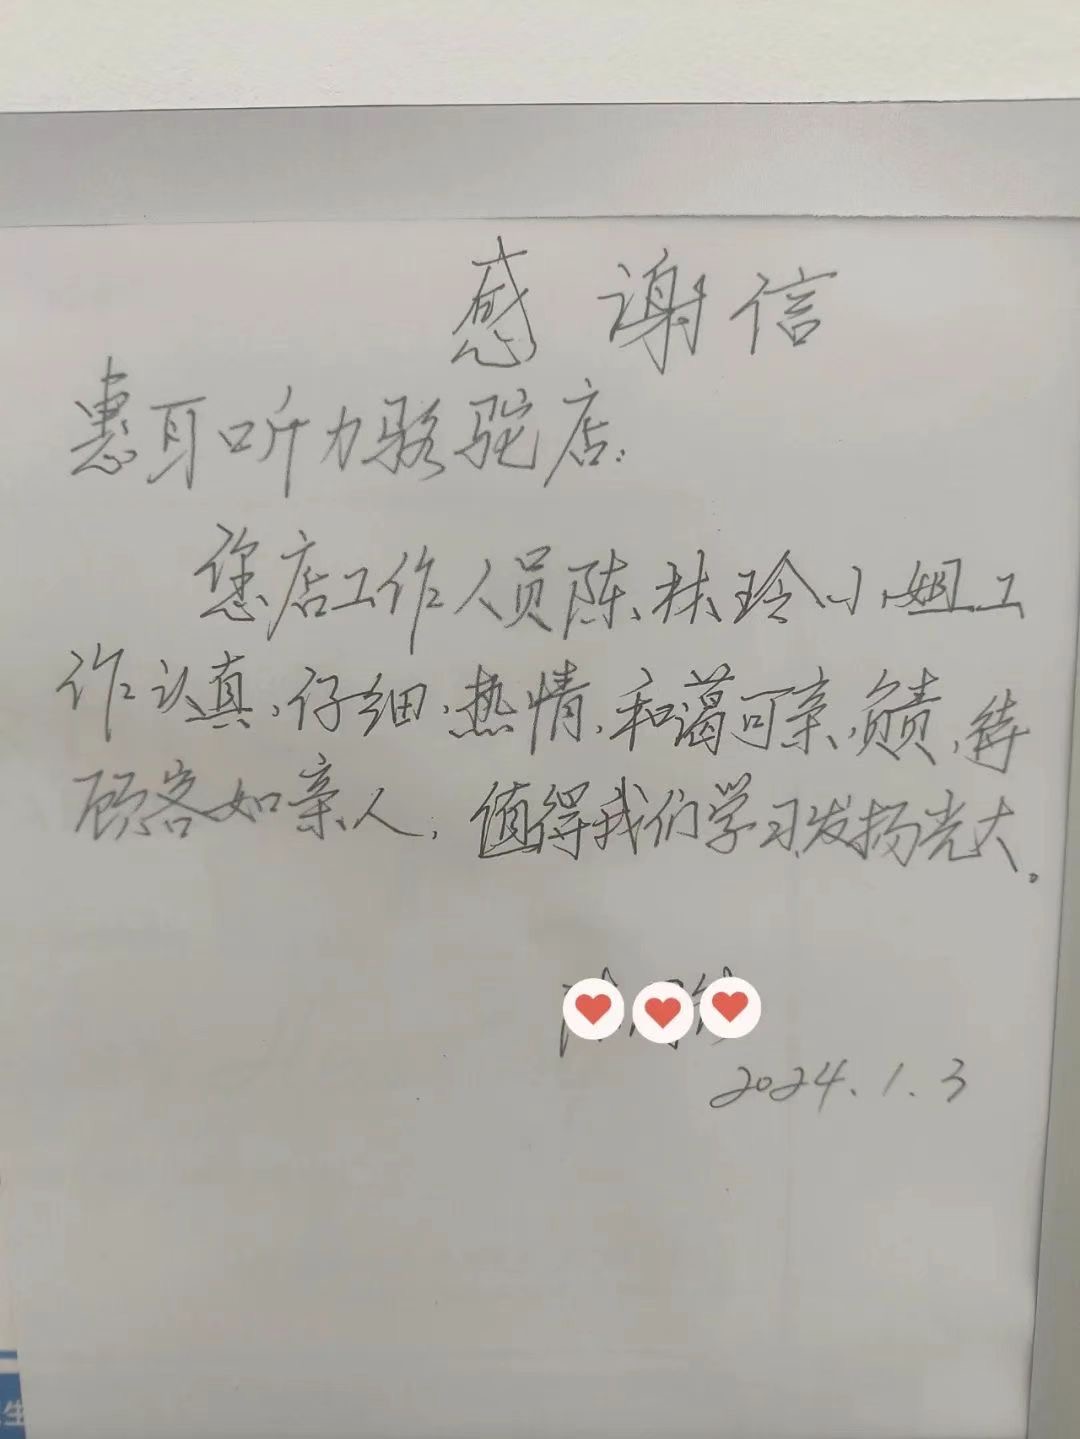 感谢信
惠耳听力骆驼店:
您店工作人员陈林玲小姐工
作认真,仔细,热情,和蔼可亲,负责,待
顾客如亲人,值得我们学习发扬光大。
2024.1.3
生